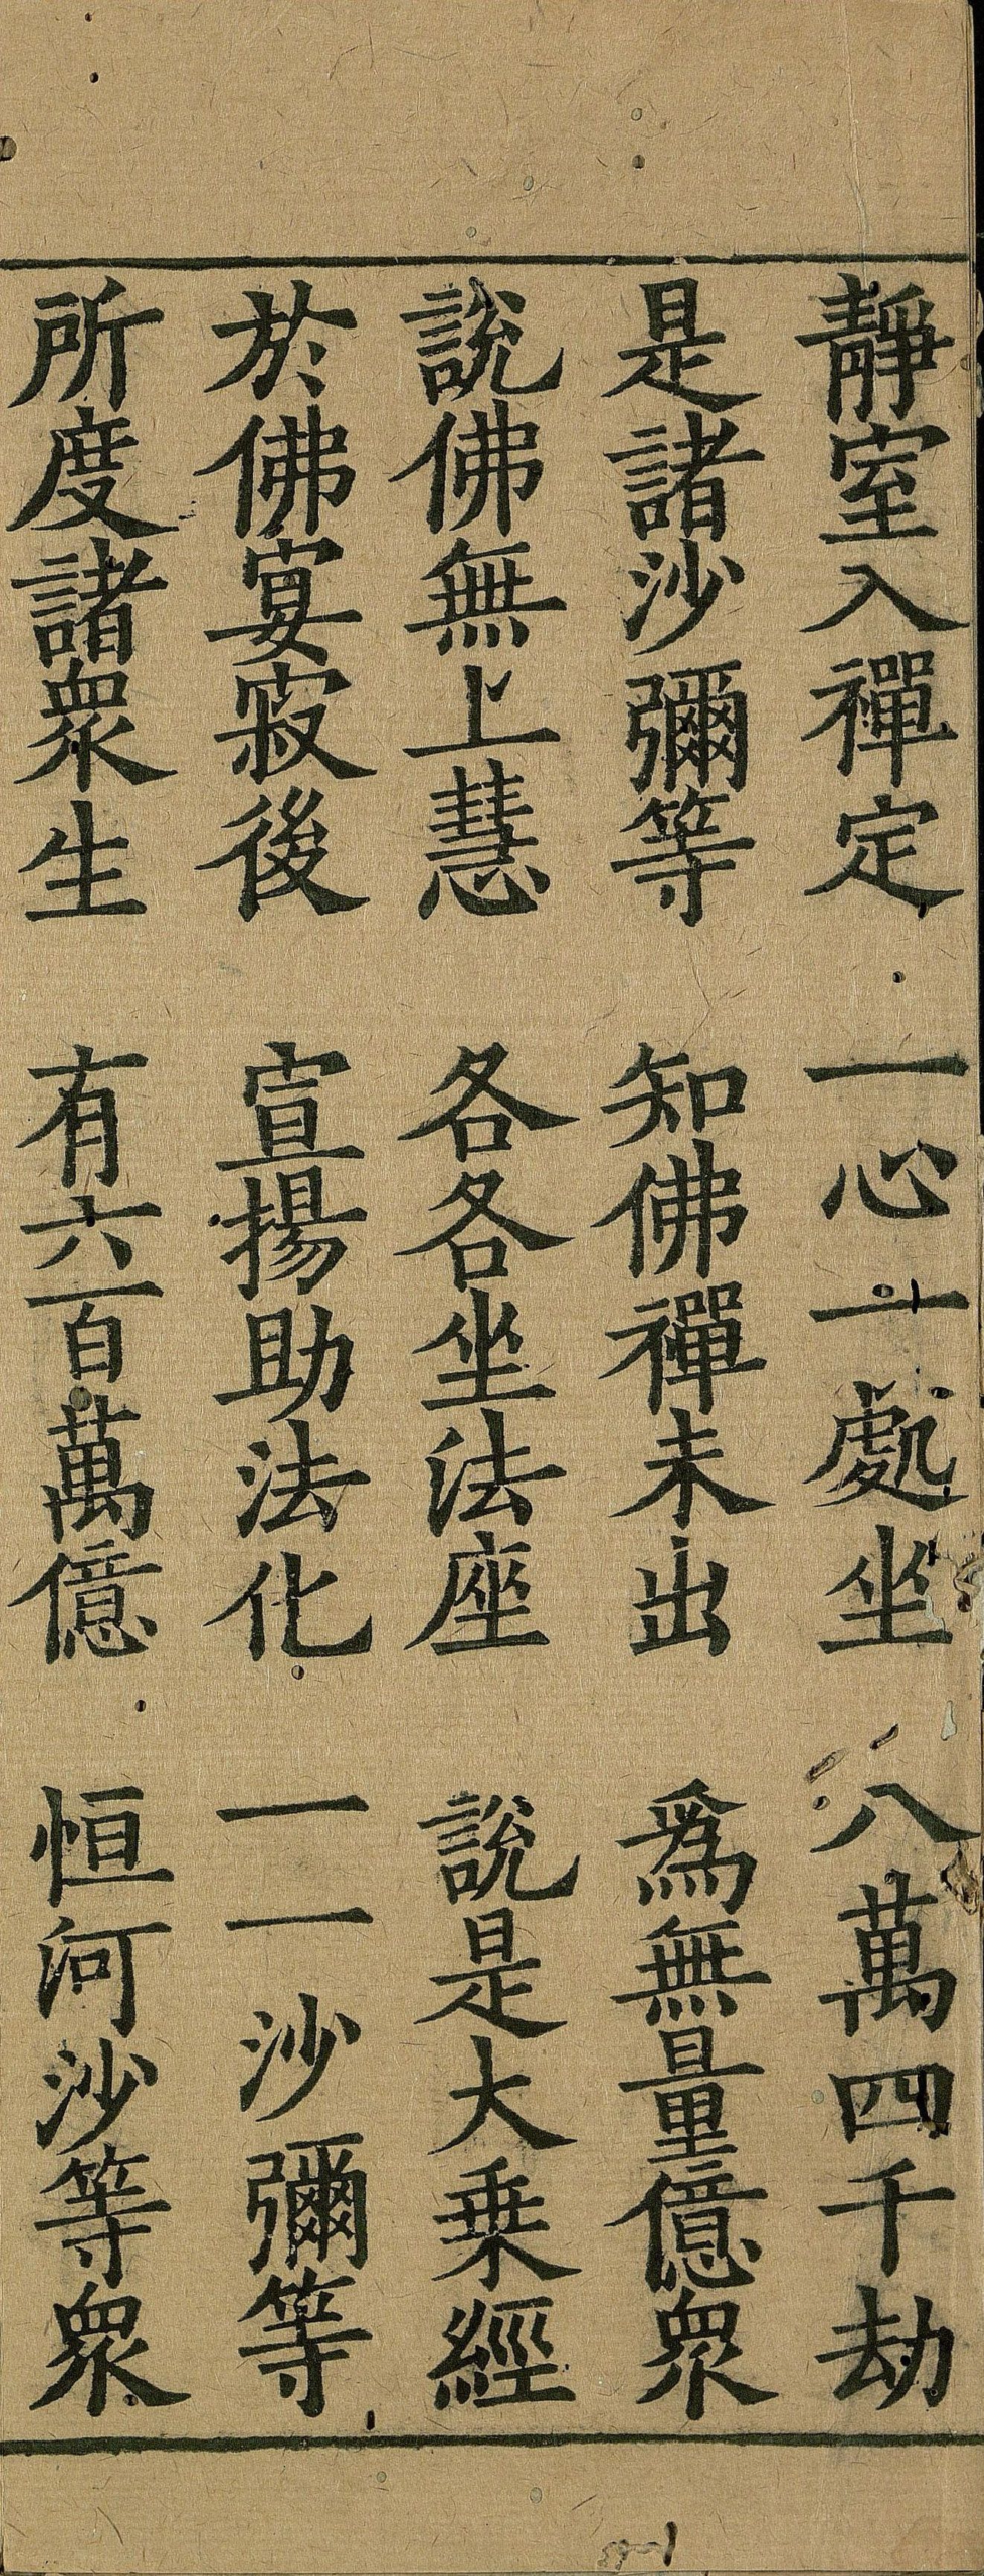 靜室入禪定　一心一處坐　八萬四千劫
是諸沙彌等　知佛禪未出　爲無量億衆
說佛無上慧　各各坐法座　說是大乗經
於佛宴寂後　宣揚助法化　一一沙彌等
所度諸衆生　有六百萬億　恒河沙等衆